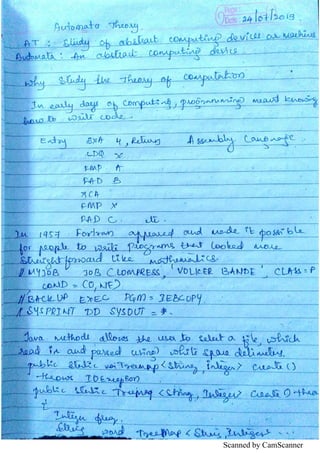 Page:
Date: 24/07/2019
Automata Theory
AT : Study of abstract computing devices or Machine
Automata : An abstract computing device
Why Study the Theory of Computation
In early days of Computing, programming meant knowing
how to write code.
Entry EXA 4, Return Assembly Language
LDQ X
FMP A
FAD B
XCA
FMP X
FAD C. etc.
In 1957 Fortran appeared and made it possible
for people to write Programs that looked more
straight forward like mathematics.
// MYJOB JOB (COMPRESS, 'VOLKER BANDE', CLASS = P
COND = (0, NE)
// BACKUP EXEC PGM = IEBCOPY
// SYSPRINT DD SYSOUT = *.
Java methode allows the user to select a file, which
read in and parsed using white space delimeters.
public static TreeMap <String, integer> Create ()
throws IOException
public static <String, Integer> Create ()
{
Integer freq,
String word TreeMap <String, Integer> ...
Scanned by CamScanner